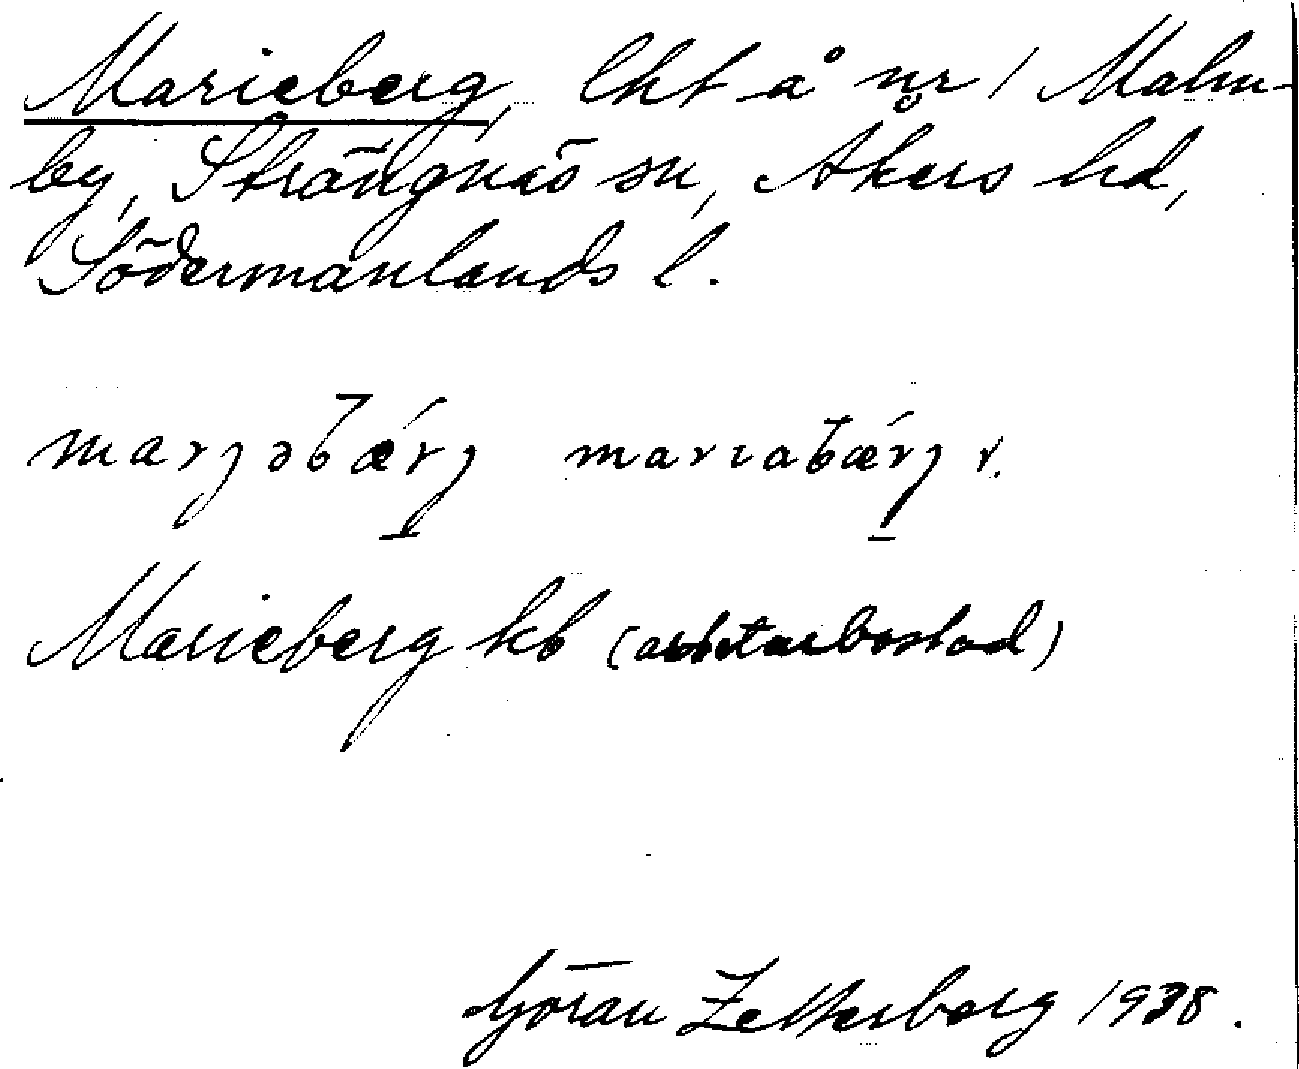 Marieberg, lht å nr 1 Malm-
by, Strängnäs sn, Åkers hd,
Södermanlands l.
marjəbǽrj mariabǽrj r.
Marieberg kb (arbetarbostad)
Göran Zetterberg 1938.